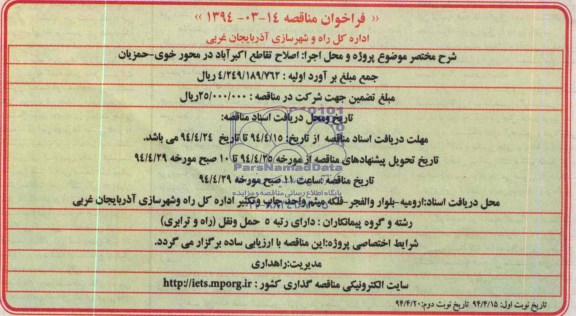 « فراخوان مناقصه ۱۴-۰۳- ۱۳۹۴ »
اداره کل راه و شهرسازی آذربایجان غربی
شرح مختصر موضوع پروژه و محل اجرا: اصلاح تقاطع اکبرآباد در محور خوی-حمزیان
جمع مبلغ بر آورد اولیه : ۴/۲۴۹/۱۸۹/۷۶۲ ریال
مبلغ تضمین جهت شرکت در مناقصه : ۲۵/۰۰۰/۰۰۰ریال
تاریخ ومحل دریافت اسناد مناقصه:
مهلت دریافت اسناد مناقصه از تاریخ: ۹۴/۴/۱۵ تا تاریخ ۹۴/۴/۲۴ می باشد.
تاریخ تحویل پیشنهادهای مناقصه از مورخه ۹۴/۴/۲۵ تا ۱۰ صبح مورخه ۹۴/۴/۲۹
تاریخ مناقصه ساعت ۱۱ صبح مورخه ۹۴/۴/۲۹
محل دریافت اسناد:ارومیه-بلوار والفجر-فلکه میثم واحد چاپ وتکثیر اداره کل راه وشهرسازی آذربایجان غربی
رشته و گروه پیمانکاران : دارای رتبه ۵ حمل ونقل (راه و ترابری)
شرایط اختصاصی پروژه:این مناقصه با ارزیابی ساده برگزار می گردد.
مدیریت:راهداری
سایت الکترونیکی مناقصه گذاری کشور : http://iets.mporg.ir
تاریخ نوبت اول: ۹۴/۴/۱۵ تاریخ نوبت دوم:۹۴/۴/۲۰
ParsNamadData
پایگاه اطلاع رسانی مناقصه و مزایده